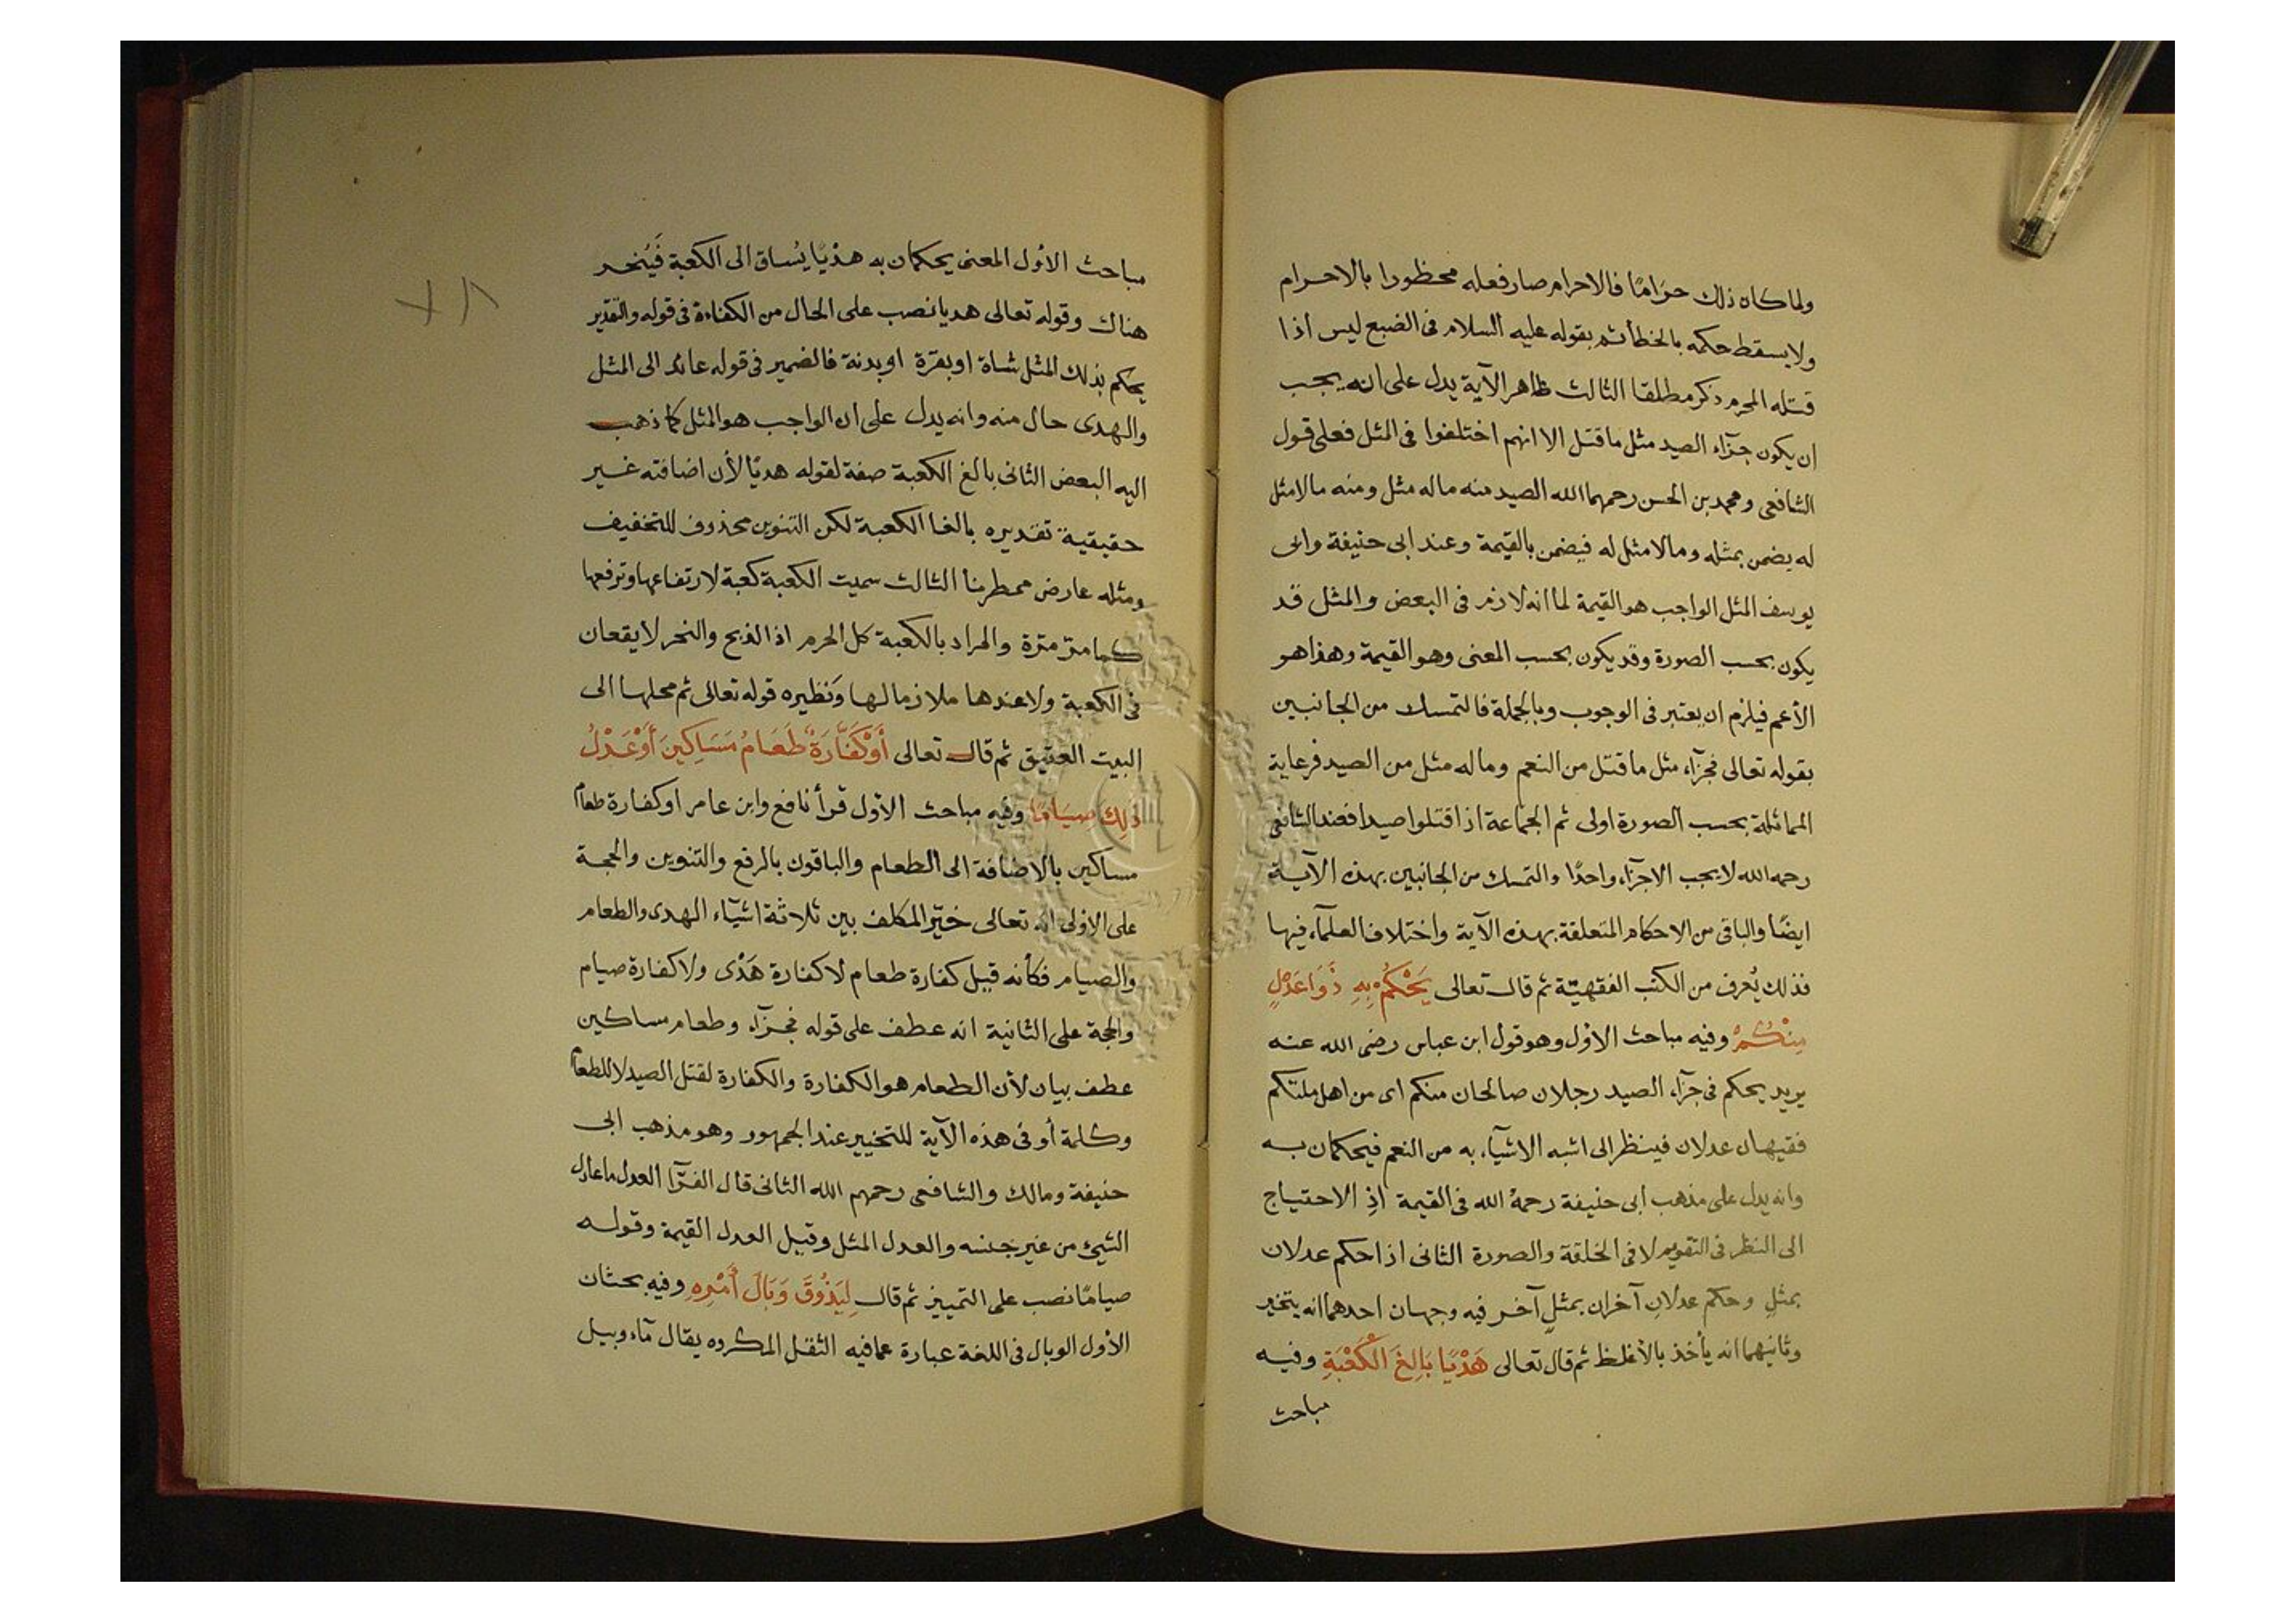 ولما كان ذلك حرامًا فالاحرام صار فعله محظورا بالاحرام
ولا يسقط حكمه بالخطأ ثم بقوله عليه السلام فى الضبع ليس اذا
قتله المحرم ذكر مطلقا الثالث ظاهر الآية يدل على انه يجب
ان يكون جزآء الصيد مثل ما قتل الا انهم اختلفوا فى المثل فعلى قول
الشافعى ومحمد بن الحسن رحمهما الله الصيد منه ماله مثل ومنه مالا مثل
له يضمن بمثله ومالا مثل له فيضمن بالقيمة وعند ابى حنيفة وابى
يوسف المثل الواجب هو القيمة لما انه لازم فى البعض والمثل قد
يكون بحسب الصورة وقد يكون بحسب المعنى وهو القيمة وهذا هو
الأعم فيلزم ان يعتبر فى الوجوب وبالجملة فالتمسك من الجانبين
بقوله تعالى فجزآء مثل ما قتل من النعم وماله مثل من الصيد فرعاية
المماثلة بحسب الصورة اولى ثم الجماعة اذا قتلوا صيدا فعند الشافعى
رحمه الله لا يجب الا جزآء واحدًا والتمسك من الجانبين بهذه الآية
ايضًا والباقى من الاحكام المتعلقة بهذه الآية واختلاف العلمآء فيها
فذلك يُعرف من الكتب الفقهيّة ثم قال تعالى يَحْكُمُ بِهِ ذَوَا عَدْلٍ
مِنْكُمْ وفيه مباحث الأول وهو قول ابن عباس رضى الله عنه
يريد يحكم فى جزآء الصيد رجلان صالحان منكم اى من اهل ملتكم
فقيهان عدلان فينظر الى اشبه الاشيآء به من النعم فيحكمان به
وانه يدل على مذهب ابى حنيفة رحمهُ الله فى القيمة اذِ الاحتياج
الى النظر فى التقويم لا فى الخلقة والصورة الثانى اذا حكم عدلان
بمثلٍ وحكم عدلانِ آخران بمثلٍ آخر فيه وجهان احدهما انه يتخير
وثانيهما انه يأخذ بالأغلظ ثم قال تعالى هَدْيًا بَالِغَ الْكَعْبَةِ وفيه
مباحث
٧٨
مباحث الأول المعنى يحكمان به هَدْيًا يُساق الى الكعبة فَيُنحر
هناك وقوله تعالى هديا نصب على الحال من الكناءة فى قوله والتقدير
يحكم بذلك المثل شاة او بقرة او بدنة فالضمير فى قوله عائد الى المثل
والهدى حال منه وانه يدل على ان الواجب هو المثل كما ذهب
اليه البعض الثانى بالغ الكعبة صفة لقوله هديًا لأن اضافته غير
حقيقية تقديره بالغا الكعبة لكن التنوين محذوف للتخفيف
ومثله عارض ممطرنا الثالث سميت الكعبة كعبة لارتفاعها وترفعها
كما مرّ مرّة والمراد بالكعبة كل الحرم اذ الذبح والنحر لا يقعان
فى الكعبة ولا عندها ملازما لها وَنظيره قوله تعالى ثم محلها الى
البيت العتيق ثم قال تعالى أَوْ كَفَّارَةٌ طَعَامُ مَسَاكِينَ أَوْ عَدْلُ
ذلِكَ صِيَامًا وفيه مباحث الأول قرأ نافع وابن عامر او كفارة طعام
مساكين بالاضافة الى الطعام والباقون بالرفع والتنوين والحجة
على الاولى انه تعالى خيّر المكلف بين ثلاثة اشيآء الهدى والطعام
والصيام فكأنه قيل كفارة طعام لا كفارة هَدْى ولا كفارة صيام
والحجة على الثانية انه عطف على قوله فجزآء وطعام مساكين
عطف بيان لأن الطعام هو الكفارة والكفارة لقتل الصيد لا للطعام
وكلمة أو فى هذه الآية للتخيير عند الجمهور وهو مذهب ابى
حنيفة ومالك والشافعى رحمهم الله الثانى قال الفرّآ العدل ما عادل
الشيئ من غير جنسه والعدل المثل وقيل العدل القيمة وقوله
صيامًا نصب على التمييز ثم قال لِيَذُوقَ وَبَالَ أَمْرِهِ وفيه بحثان
الأول الوبال فى اللغة عبارة عما فيه الثقل المكروه يقال مآء وبيل